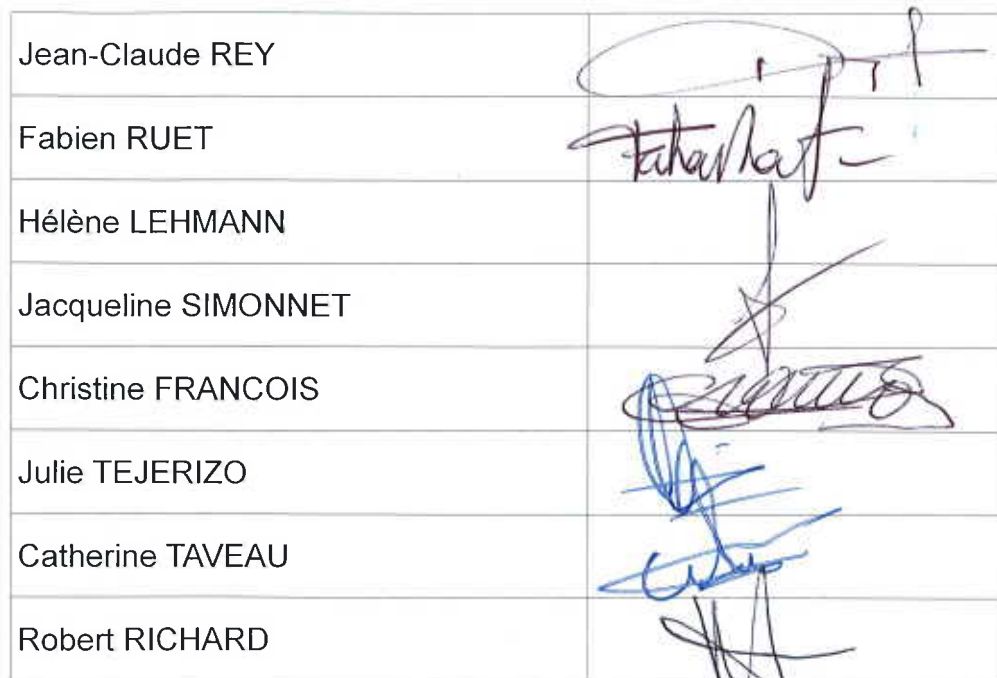 Jean-Claude REY
Fabien RUET
Hélène LEHMANN
Jacqueline SIMONNET
Christine FRANCOIS
Julie TEJERIZO
Catherine TAVEAU
Robert RICHARD